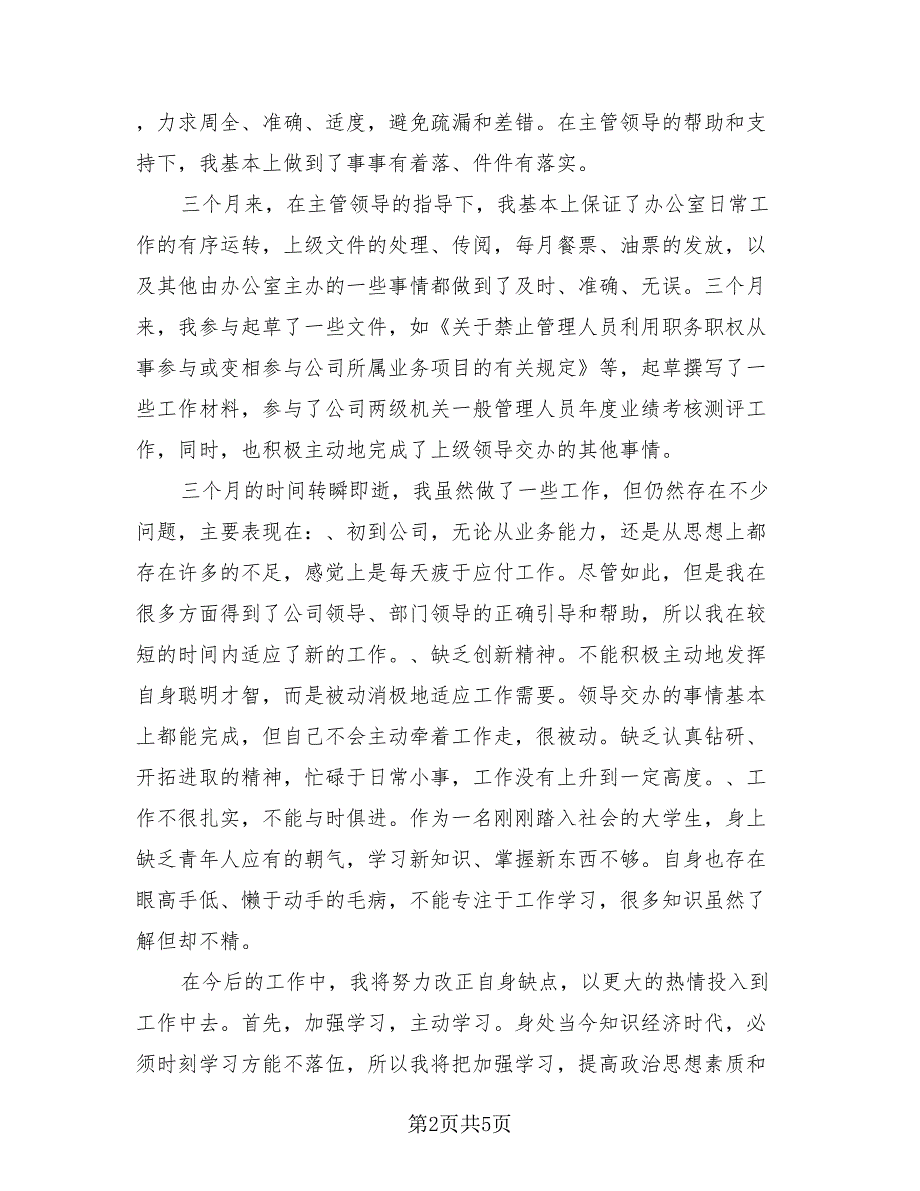 ，力求周全、准确、适度，避免疏漏和差错。在主管领导的帮助和支
持下，我基本上做到了事事有着落、件件有落实。
三个月来，在主管领导的指导下，我基本上保证了办公室日常工
作的有序运转，上级文件的处理、传阅，每月餐票、油票的发放，以
及其他由办公室主办的一些事情都做到了及时、准确、无误。三个月
来，我参与起草了一些文件，如《关于禁止管理人员利用职务职权从
事参与或变相参与公司所属业务项目的有关规定》等，起草撰写了一
些工作材料，参与了公司两级机关一般管理人员年度业绩考核测评工
作，同时，也积极主动地完成了上级领导交办的其他事情。
三个月的时间转瞬即逝，我虽然做了一些工作，但仍然存在不少
问题，主要表现在：、初到公司，无论从业务能力，还是从思想上都
存在许多的不足，感觉上是每天疲于应付工作。尽管如此，但是我在
很多方面得到了公司领导、部门领导的正确引导和帮助，所以我在较
短的时间内适应了新的工作。、缺乏创新精神。不能积极主动地发挥
自身聪明才智，而是被动消极地适应工作需要。领导交办的事情基本
上都能完成，但自己不会主动牵着工作走，很被动。缺乏认真钻研、
开拓进取的精神，忙碌于日常小事，工作没有上升到一定高度。、工
作不很扎实，不能与时俱进。作为一名刚刚踏入社会的大学生，身上
缺乏青年人应有的朝气，学习新知识、掌握新东西不够。自身也存在
眼高手低、懒于动手的毛病，不能专注于工作学习，很多知识虽然了
解但却不精。
在今后的工作中，我将努力改正自身缺点，以更大的热情投入到
工作中去。首先，加强学习，主动学习。身处当今知识经济时代，必
须时刻学习方能不落伍，所以我将把加强学习，提高政治思想素质和
第2页共5页